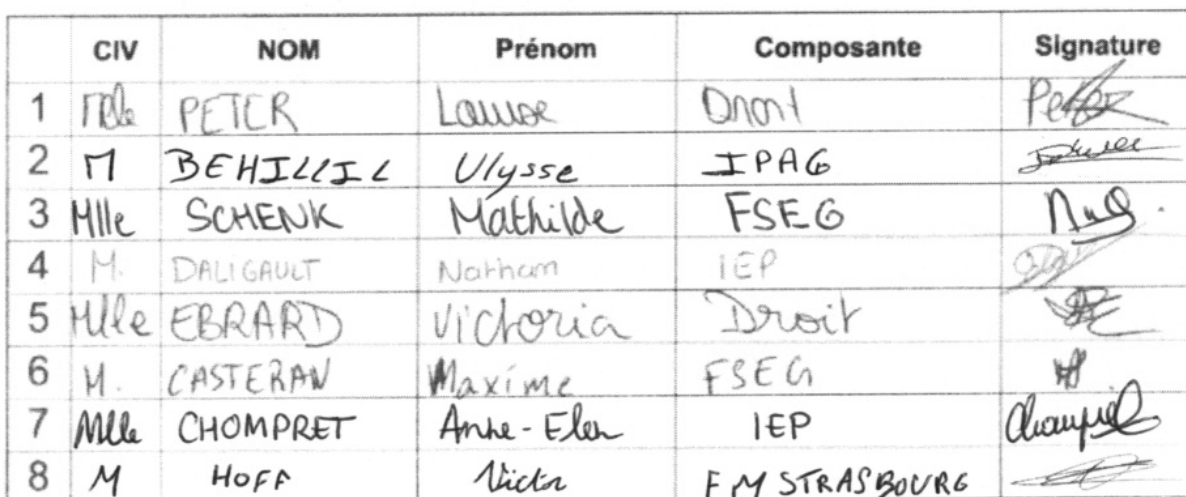 CIV NOM Prénom Composante Signature
1 Mlle PETER Louise Droit Peter
2 M BEHILLIL Ulysse IPAG
3 Mlle SCHENK Mathilde FSEG
4 M. DALIGAULT Nathan IEP
5 Mlle EBRARD Victoria Droit
6 M. CASTERAN Maxime FSEG
7 Mlle CHOMPRET Anne-Elen IEP
8 M HOFF Victor FM STRASBOURG